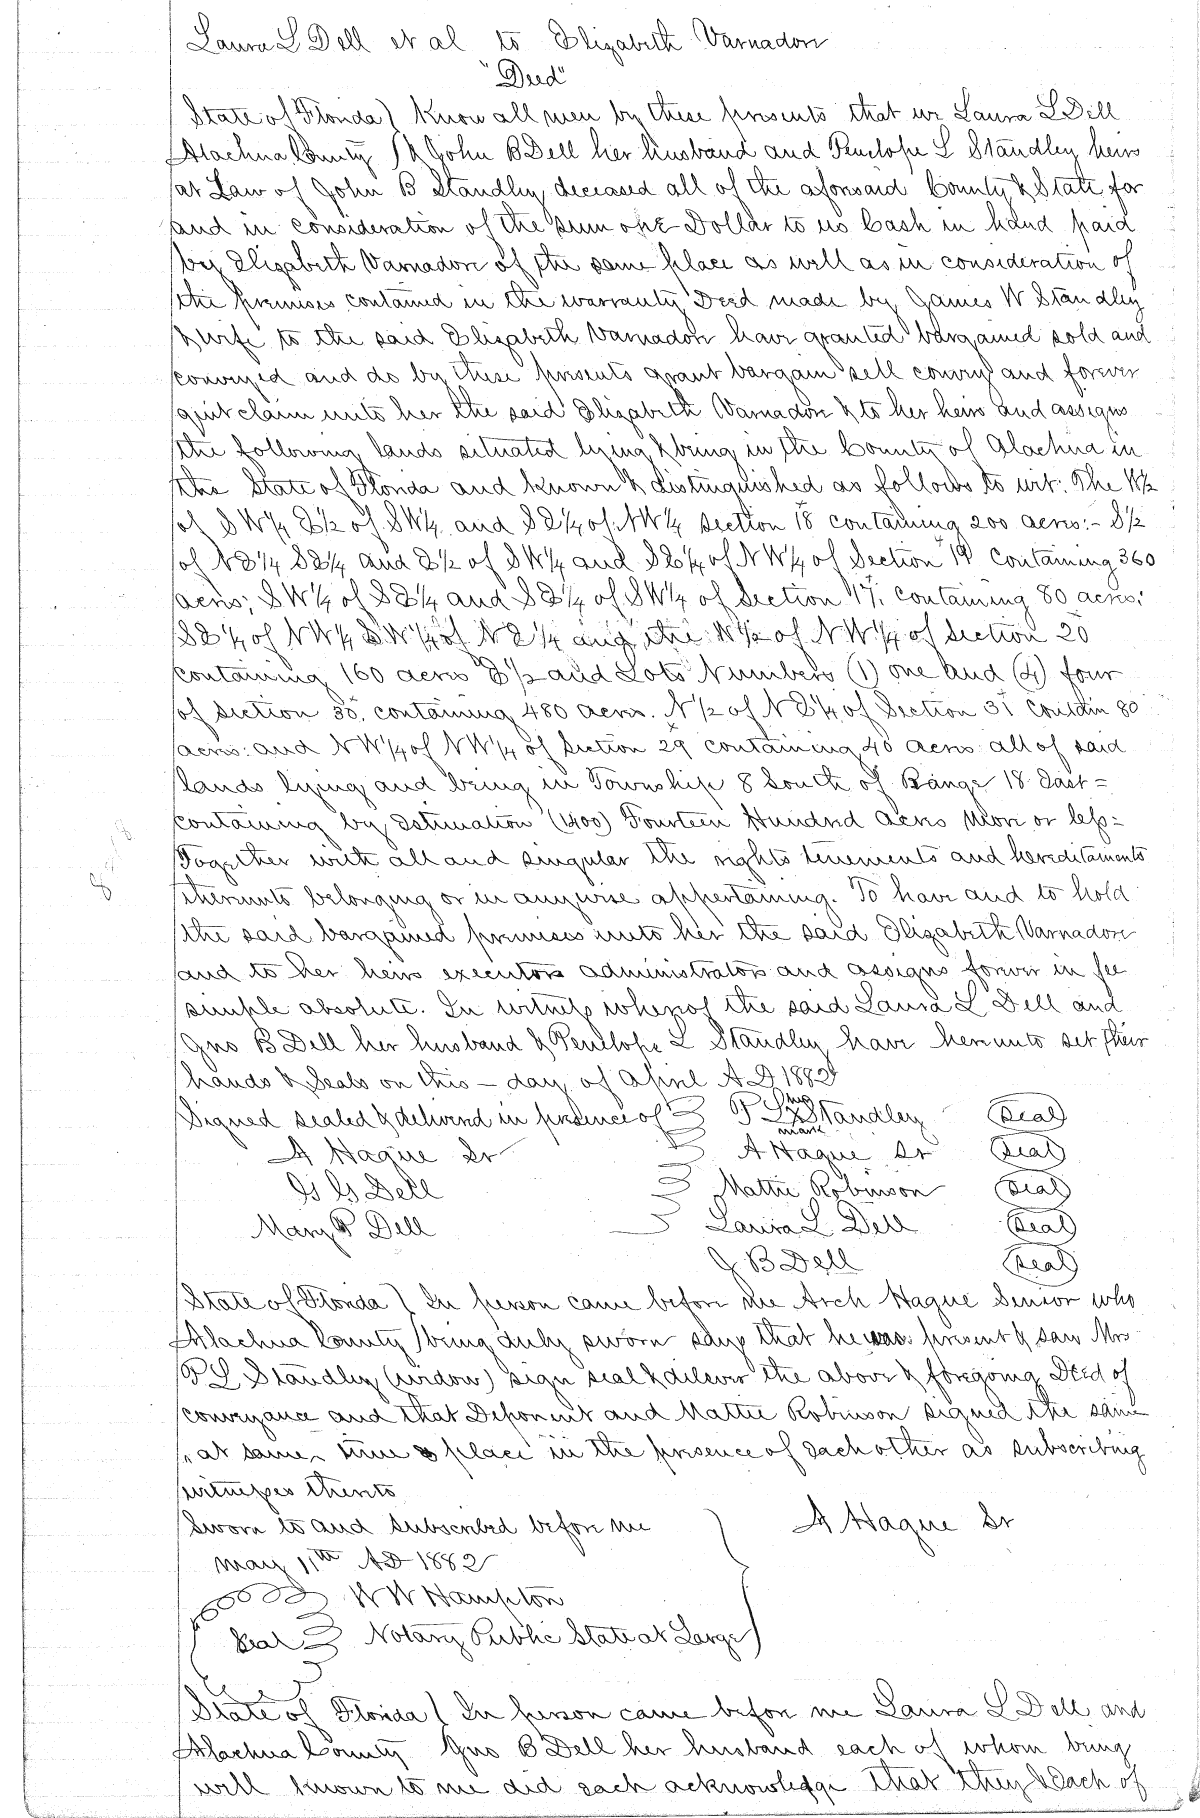 Laura L Dell et al to Elizabeth Varnadon
"Deed"
State of Florida ) Know all men by these presents that we Laura L Dell
Alachua County ) & John B Dell her husband and Penelope L Standley heirs
at Law of John B Standley deceased all of the aforesaid County & State for
and in consideration of the sum one Dollar to us Cash in hand paid
by Elizabeth Varnadon of the same place as well as in consideration of
the premises contained in the warranty Deed made by James W Standley
& wife to the said Elizabeth Varnadon have granted bargained sold and
conveyed and do by these presents grant bargain sell convey and forever
quit claim unto her the said Elizabeth Varnadon & to her heirs and assigns
the following lands situated lying & being in the County of Alachua in
the State of Florida and known & distinguished as follows to wit: The W½
of SW¼ E½ of SW¼ and SE¼ of NW¼ section 18 containing 200 acres:- S½
of NE¼ SE¼ and E½ of SW¼ and SE¼ of NW¼ of Section 19 containing 360
acres; SW¼ of SE¼ and SE¼ of SW¼ of Section 17. containing 80 acres:
SE¼ of NW¼ SW¼ of NE¼ and the W½ of NW¼ of Section 20
containing 160 acres E½ and Lots Numbers (1) one and (4) four
of Section 30. containing 480 acres. N½ of NE¼ of Section 31 Contain 80
acres: and NW¼ of NW¼ of Section 29 containing 40 acres all of said
lands lying and being in Township 8 South of Range 18 East =
containing by Estimation (1400) Fourteen Hundred Acres More or less =
Together with all and singular the rights tenements and hereditaments
thereunto belonging or in anywise appertaining. To have and to hold
the said bargained premises unto her the said Elizabeth Varnadon
and to her heirs executors administrators and assigns forever in fee
simple absolute. In witness whereof the said Laura L Dell and
Jno B Dell her husband & Penelope L Standley have hereunto set their
hands & Seals on this — day of April A D 1882
Signed sealed & delivered in presence of P L her x mark Standley (Seal)
A Hague Sr A Hague Sr (Seal)
G G Dell Mattie Robinson (Seal)
Mary P Dell Laura L Dell (Seal)
J B Dell (Seal)
State of Florida ) In person came before me Arch Hague Senior who
Alachua County ) being duly sworn says that he was present & saw Mrs
P L Standley (widow) sign seal & deliver the above & foregoing Deed of
conveyance and that Deponent and Mattie Robinson signed the same
at same time & place in the presence of each other as subscribing
witnesses thereto
Sworn to and subscribed before me ) A Hague Sr
May 11th AD 1882
W W Hampton
Seal Notary Public State at Large
State of Florida ) In person came before me Laura L Dell and
Alachua County Jno B Dell her husband each of whom being
well known to me did each acknowledge that they & Each of